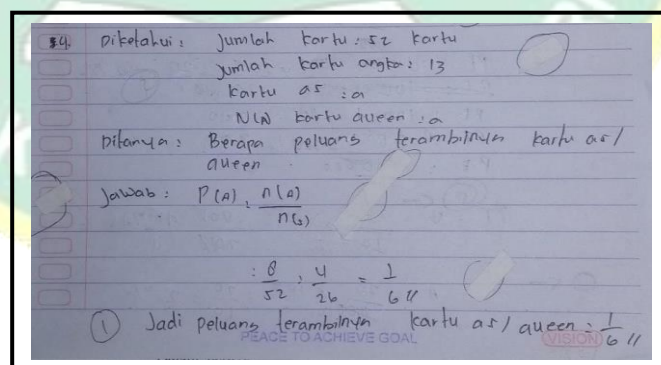 4. Diketahui : Jumlah kartu : 52 kartu
Jumlah kartu angka : 13
Kartu as : a
N(A) kartu queen : a
Ditanya : Berapa peluang terambilnya kartu as/
queen
Jawab : P(A) : n(A)
n(s)
: 8 : 4 = 1
52 26 6 //
1 Jadi peluang terambilnya kartu as/queen : 1/6 //
PEACE TO ACHIEVE GOAL
VISION